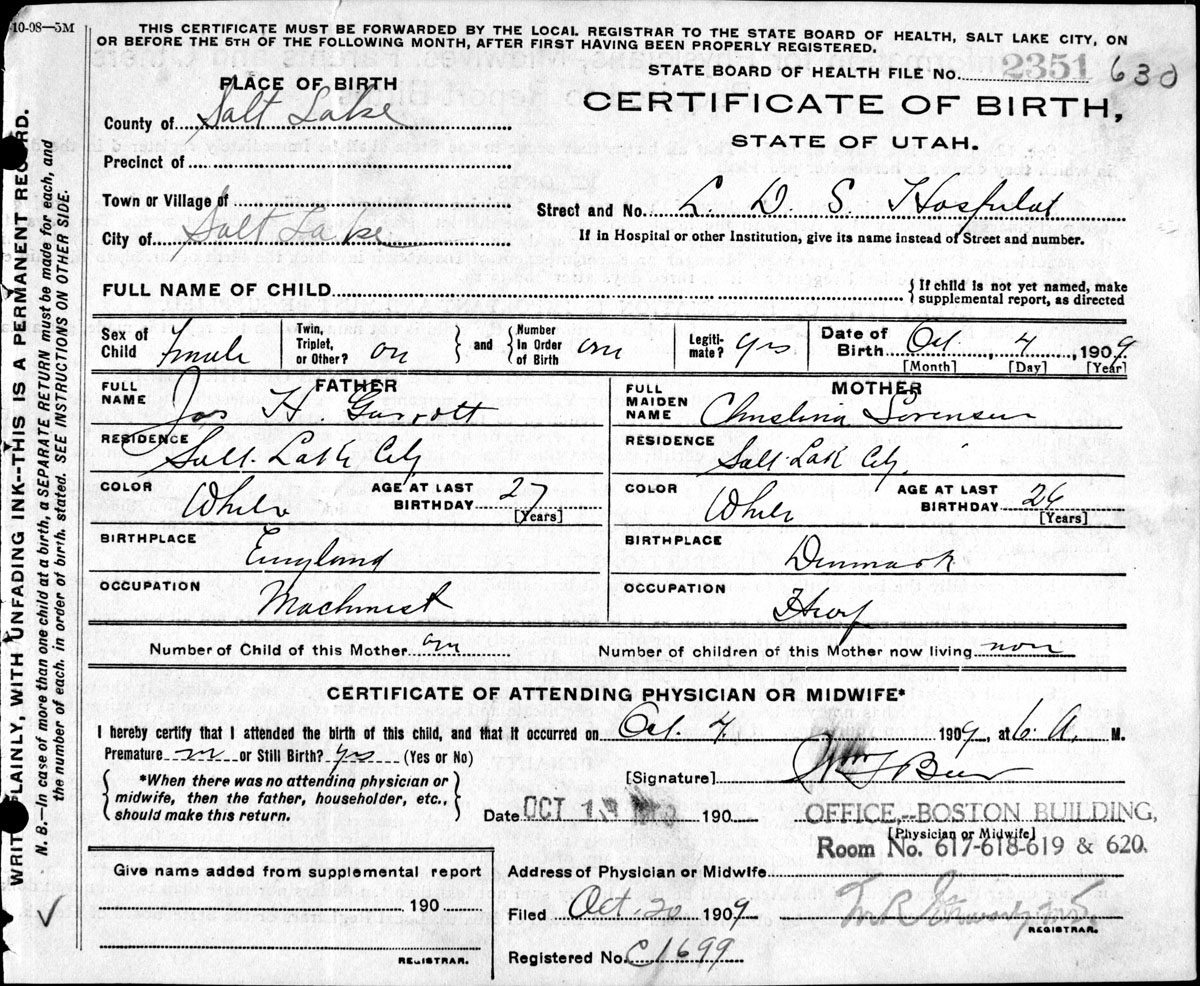 10-08—5M
THIS CERTIFICATE MUST BE FORWARDED BY THE LOCAL REGISTRAR TO THE STATE BOARD OF HEALTH, SALT LAKE CITY, ON
OR BEFORE THE 5TH OF THE FOLLOWING MONTH, AFTER FIRST HAVING BEEN PROPERLY REGISTERED.
STATE BOARD OF HEALTH FILE No. 2351 630
PLACE OF BIRTH
CERTIFICATE OF BIRTH,
STATE OF UTAH.
County of Salt Lake
Precinct of
Town or Village of
City of Salt Lake
Street and No. L. D. S. Hospital
If in Hospital or other Institution, give its name instead of Street and number.
FULL NAME OF CHILD
{ If child is not yet named, make
supplemental report, as directed
Sex of Child Female
Twin, Triplet, or Other? on } and { Number In Order of Birth on
Legiti-mate? yes
Date of Birth Oct. 4, 1909
[Month] [Day] [Year]
FATHER
FULL NAME Jas H. Garrott
RESIDENCE Salt Lake City
COLOR White AGE AT LAST BIRTHDAY 27 [Years]
BIRTHPLACE England
OCCUPATION Machinist
MOTHER
FULL MAIDEN NAME Christina Sorensen
RESIDENCE Salt Lake City
COLOR White AGE AT LAST BIRTHDAY 26 [Years]
BIRTHPLACE Denmark
OCCUPATION Hswf
Number of Child of this Mother on Number of children of this Mother now living non
CERTIFICATE OF ATTENDING PHYSICIAN OR MIDWIFE*
I hereby certify that I attended the birth of this child, and that it occurred on Oct. 4 1909, at 6 A. M.
Premature no or Still Birth? yes (Yes or No)
{ *When there was no attending physician or
midwife, then the father, householder, etc.,
should make this return. }
[Signature] Wm F Beer
Date OCT 190
OFFICE,--BOSTON BUILDING,
[Physician or Midwife]
Room No. 617-618-619 & 620.
Give name added from supplemental report
190
REGISTRAR.
Address of Physician or Midwife
Filed Oct. 20 1909
REGISTRAR.
Registered No. C1699
WRITE PLAINLY, WITH UNFADING INK--THIS IS A PERMANENT RECORD.
N. B.—In case of more than one child at a birth, a SEPARATE RETURN must be made for each, and
the number of each, in order of birth, stated. SEE INSTRUCTIONS ON OTHER SIDE.